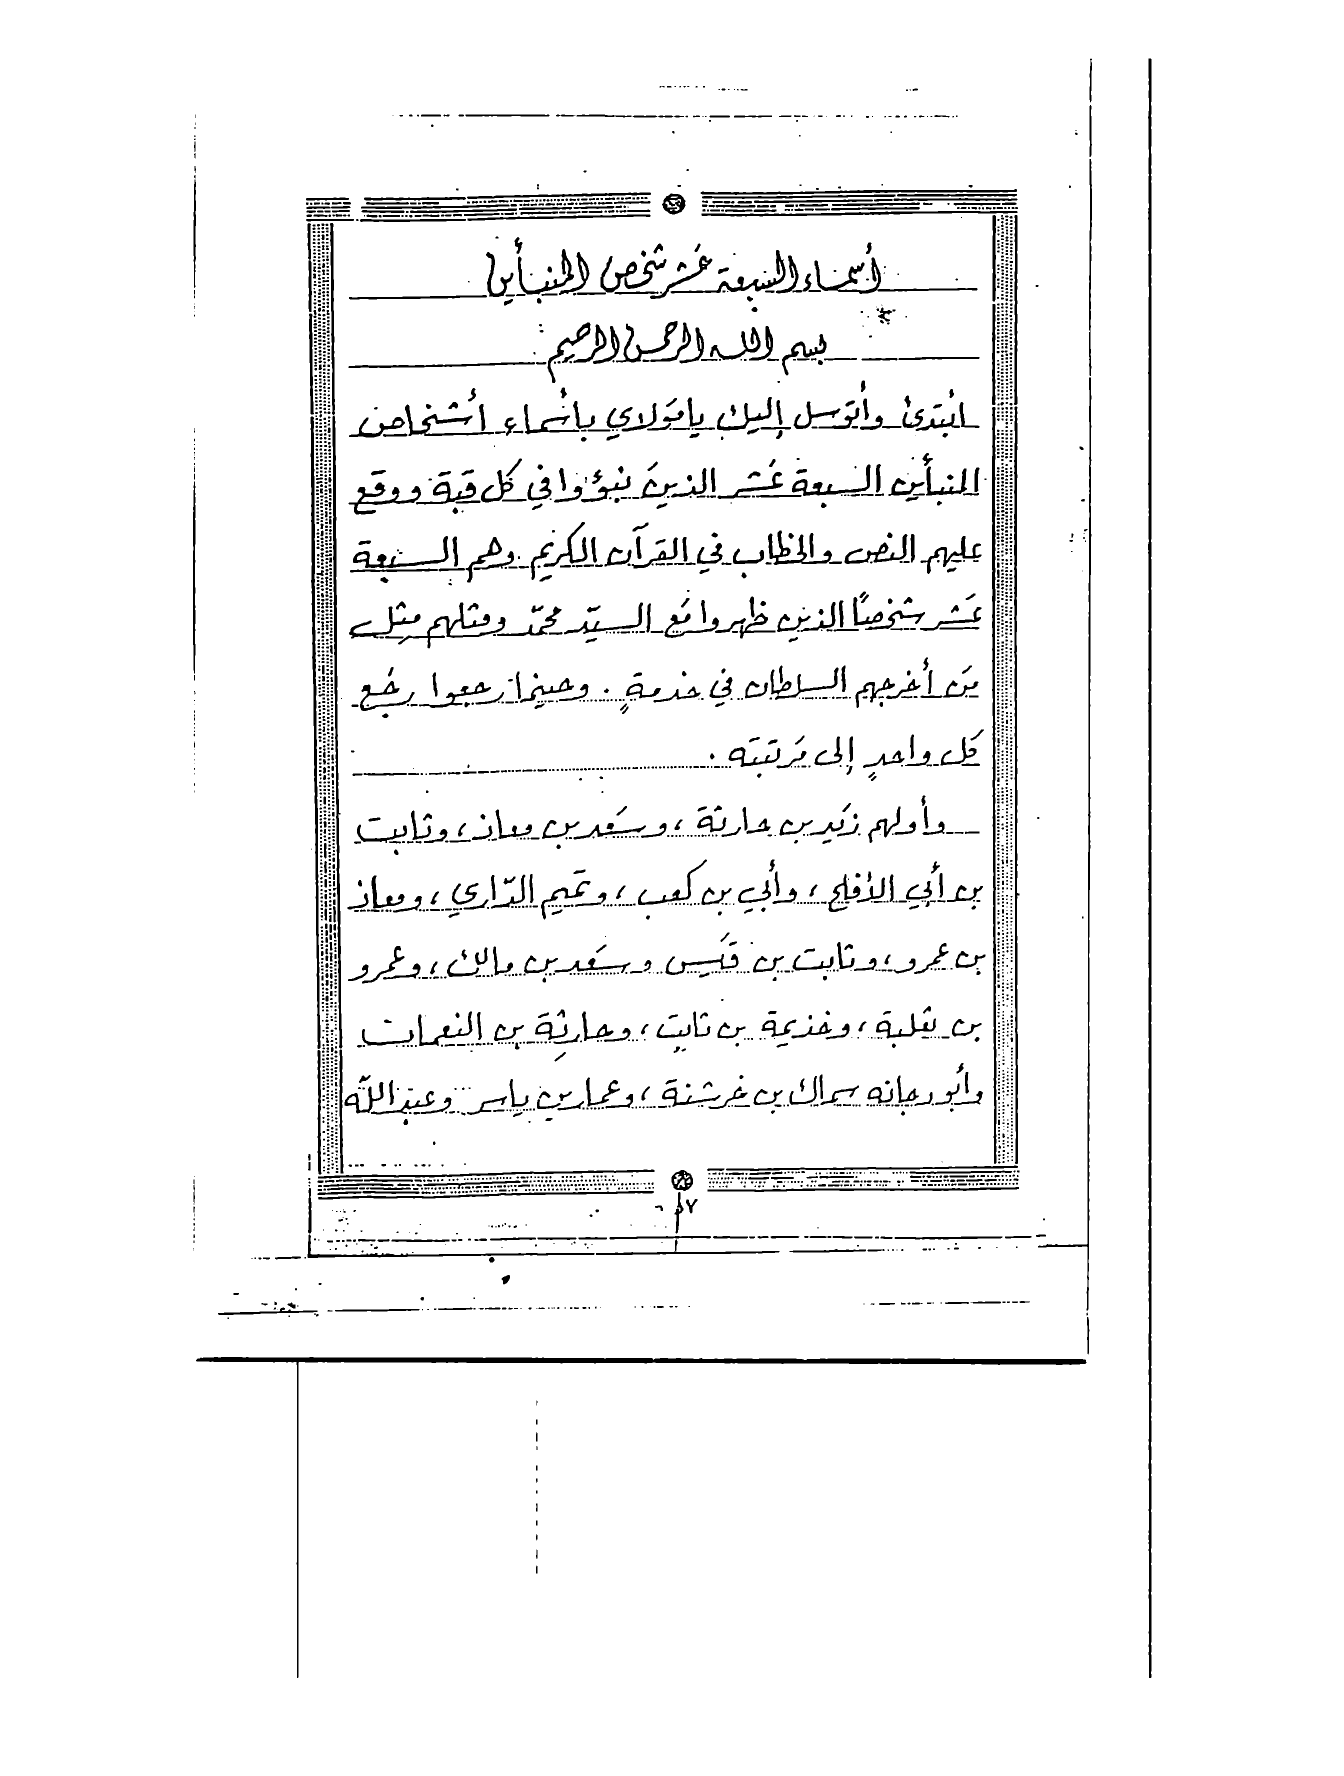 أسماء السبعة عَشر شخص المنبأين
بسم الله الرحمن الرحيم
ابْتدئ وأتوسل إليك يا مَولاي بأسماء أشخاص
المنبأين السبعة عَشر الذينَ نبؤوا في كل قبة ووقع
عليهم النص والخطاب في القرآن الكريم وهم السبعة
عَشر شخصًا الذين ظهروا مَع السيّد محمّد ومثلهم مِثل
مَن أخرجهم السلطان في خدمةٍ . وحينما رجعوا رجَع
كل واحدٍ إلى مَرتبته .
وأولهم زيَد بن حارثة ، وسَعد بن معاذ ، وثابت
بن أبي الأفلح ، وأبي بن كعب ، وتميم الدّاري ، ومعاذ
بن عمرو ، وثابت بن قيَس وسَعد بن مالك ، وعمرو
بن ثعلبة ، وخزيمة بن ثابت ، وحارثِة بن النعمان
وأبو دجانه سماك بن خرشنة ، وعمار بن ياسر وعبد اللّه